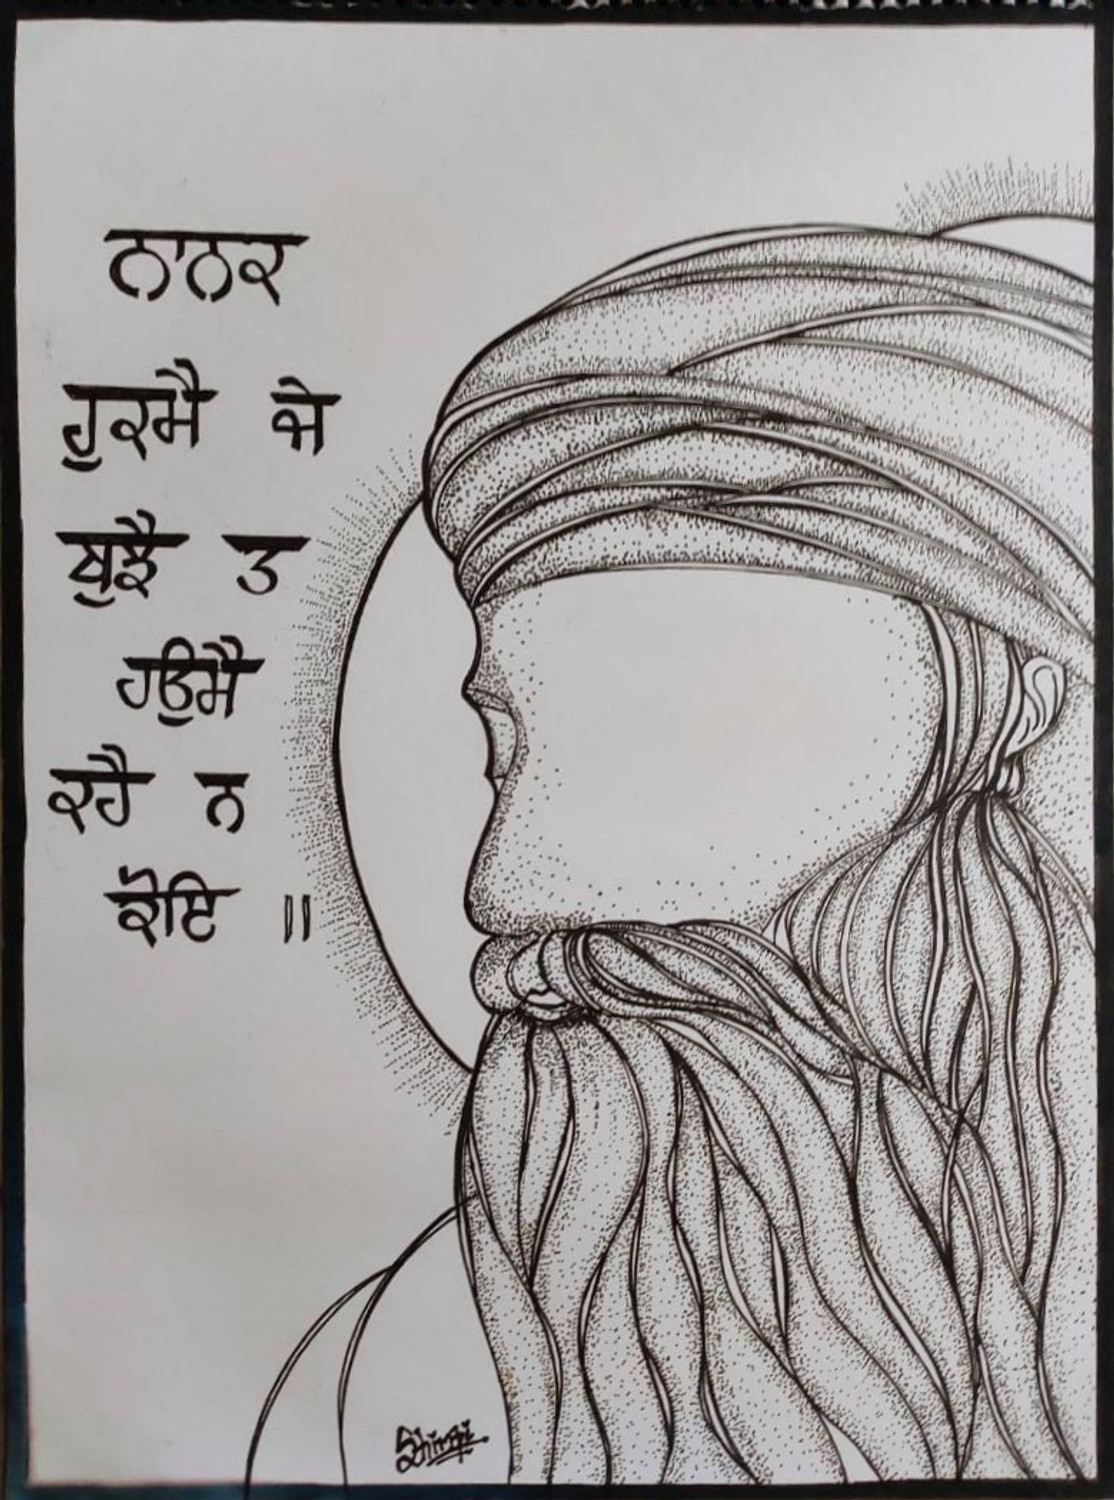 ਨਾਨਕ
ਹੁਕਮੈ ਜੇ
ਬੁਝੈ ਤ
ਹਉਮੈ
ਕਹੈ ਨ
ਕੋਇ ॥
Shirgi